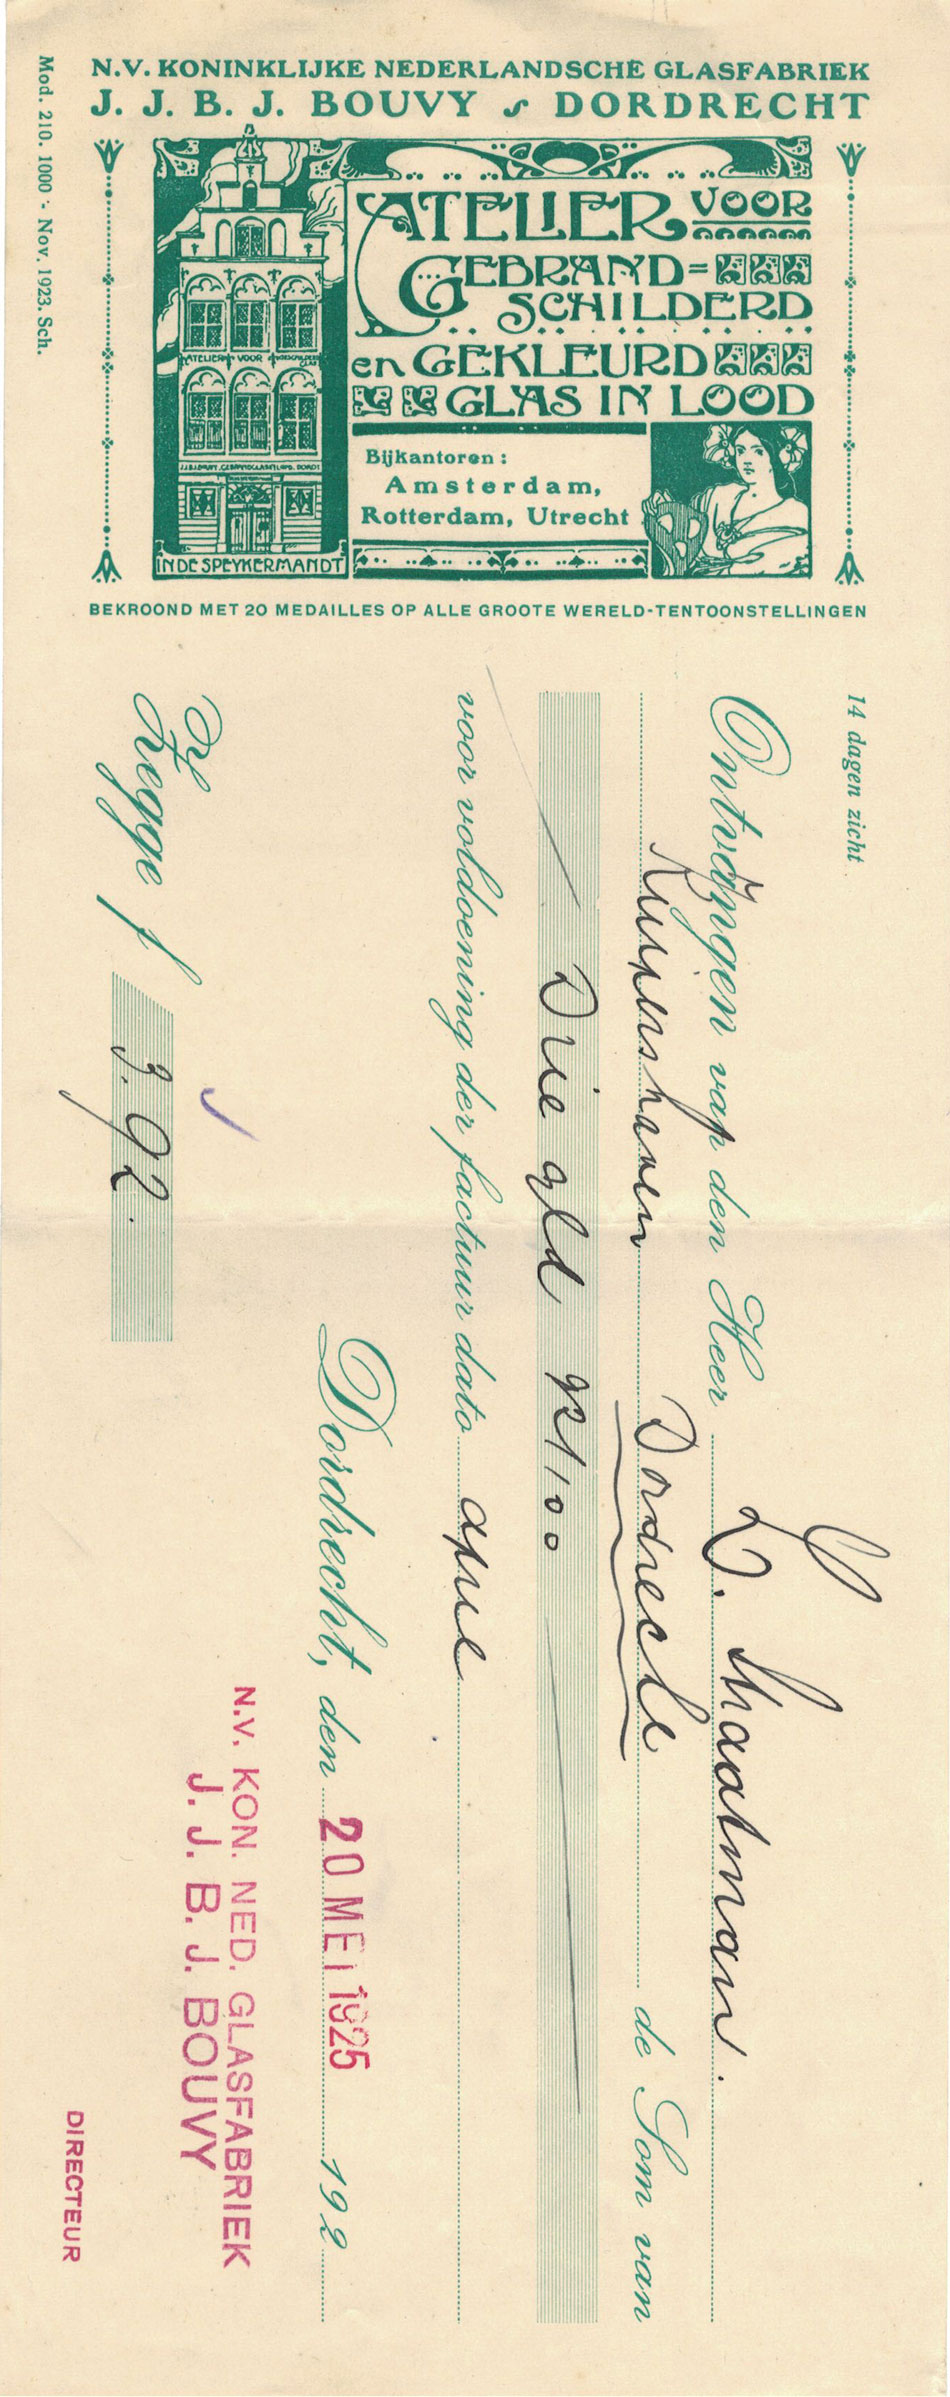 N.V. KONINKLIJKE NEDERLANDSCHE GLASFABRIEK
J. J. B. J. BOUVY DORDRECHT
ATELIER VOOR
GEBRAND=
SCHILDERD
en GEKLEURD
GLAS IN LOOD
Bijkantoren:
Amsterdam,
Rotterdam, Utrecht
ATELIER VOOR
IN DE SPEYKERMANDT
BEKROOND MET 20 MEDAILLES OP ALLE GROOTE WERELD-TENTOONSTELLINGEN
Mod. 210. 1000 - Nov. 1923. Sch.
14 dagen zicht
Ontvangen van den Heer
Kuipershaven Dordrecht de Som van
Drie gld 92/100
voor voldoening der factuur dato april
Dordrecht, den 20 MEI 1925 192
Zegge f 3.92.
N.V. KON. NED. GLASFABRIEK
J. J. B. J. BOUVY
DIRECTEUR